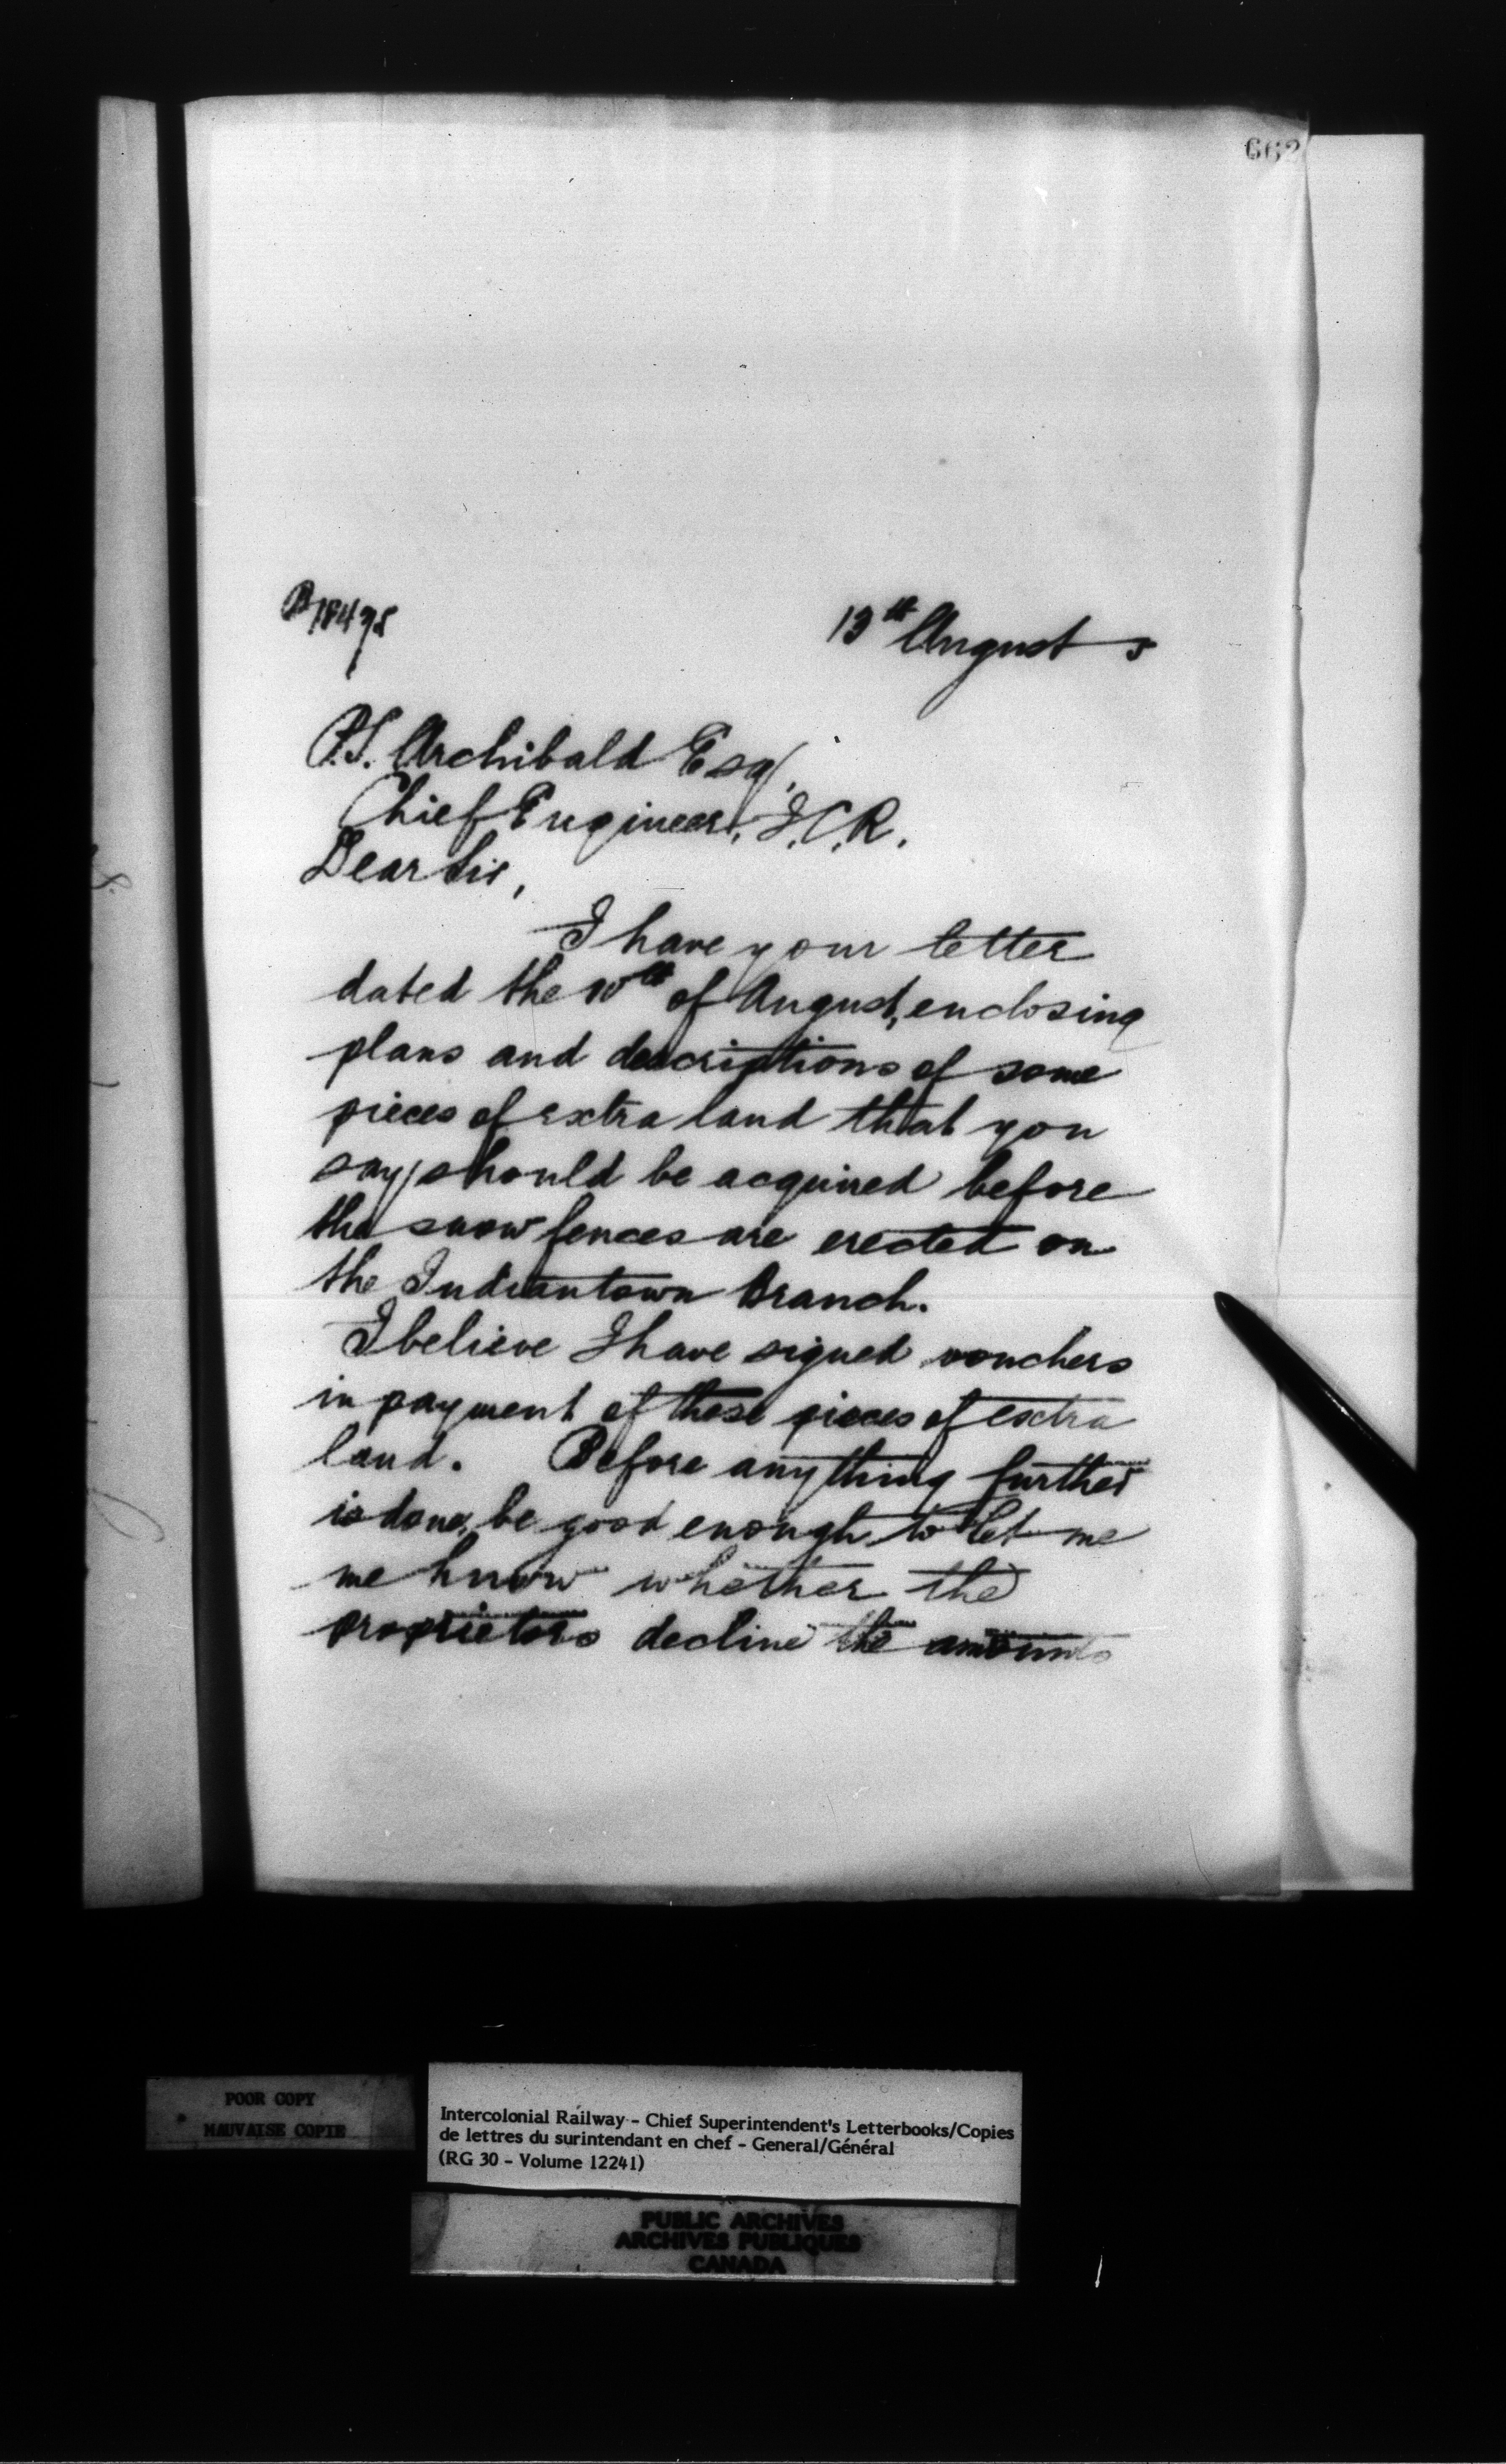 662
13th August 5
P.S. Archibald Esq,
Chief Engineer, I.C.R.
Dear Sir,
I have your letter
dated the 10th of August, enclosing
plans and descriptions of some
pieces of extra land that you
say should be acquired before
the snow fences are erected on
the Indiantown Branch.
I believe I have signed vouchers
in payment of these pieces of extra
land. Before anything further
is done, be good enough to let me
me know whether the
proprietors decline the amounts
POOR COPY
MAUVAISE COPIE
Intercolonial Railway - Chief Superintendent's Letterbooks/Copies
de lettres du surintendant en chef - General/Général
(RG 30 - Volume 12241)
PUBLIC ARCHIVES
ARCHIVES PUBLIQUES
CANADA